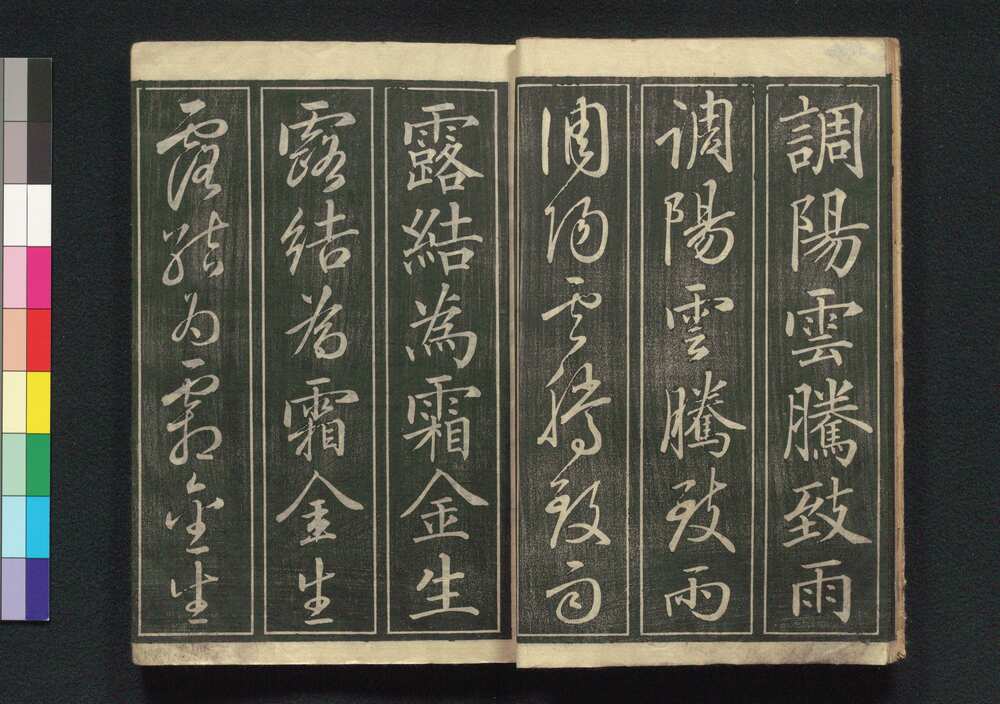 調陽雲騰致雨
調陽雲騰致雨
調陽雲騰致雨
露結為霜金生
露結為霜金生
露結為霜金生